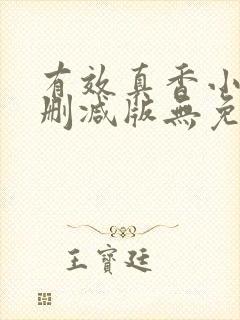 有效真香小
删减版無免
王寶廷